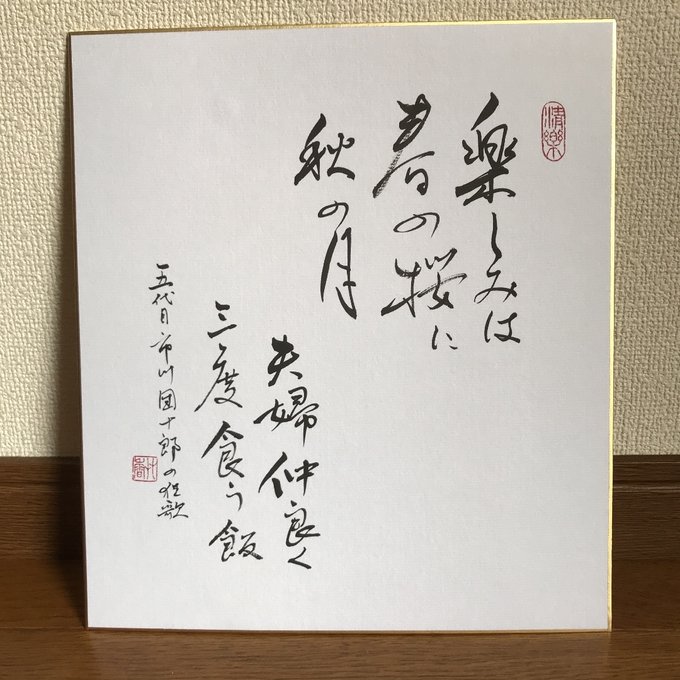 清樂
楽しみは
春の桜に
秋の月
夫婦仲良く
三度食う飯
五代目市川団十郎の狂歌